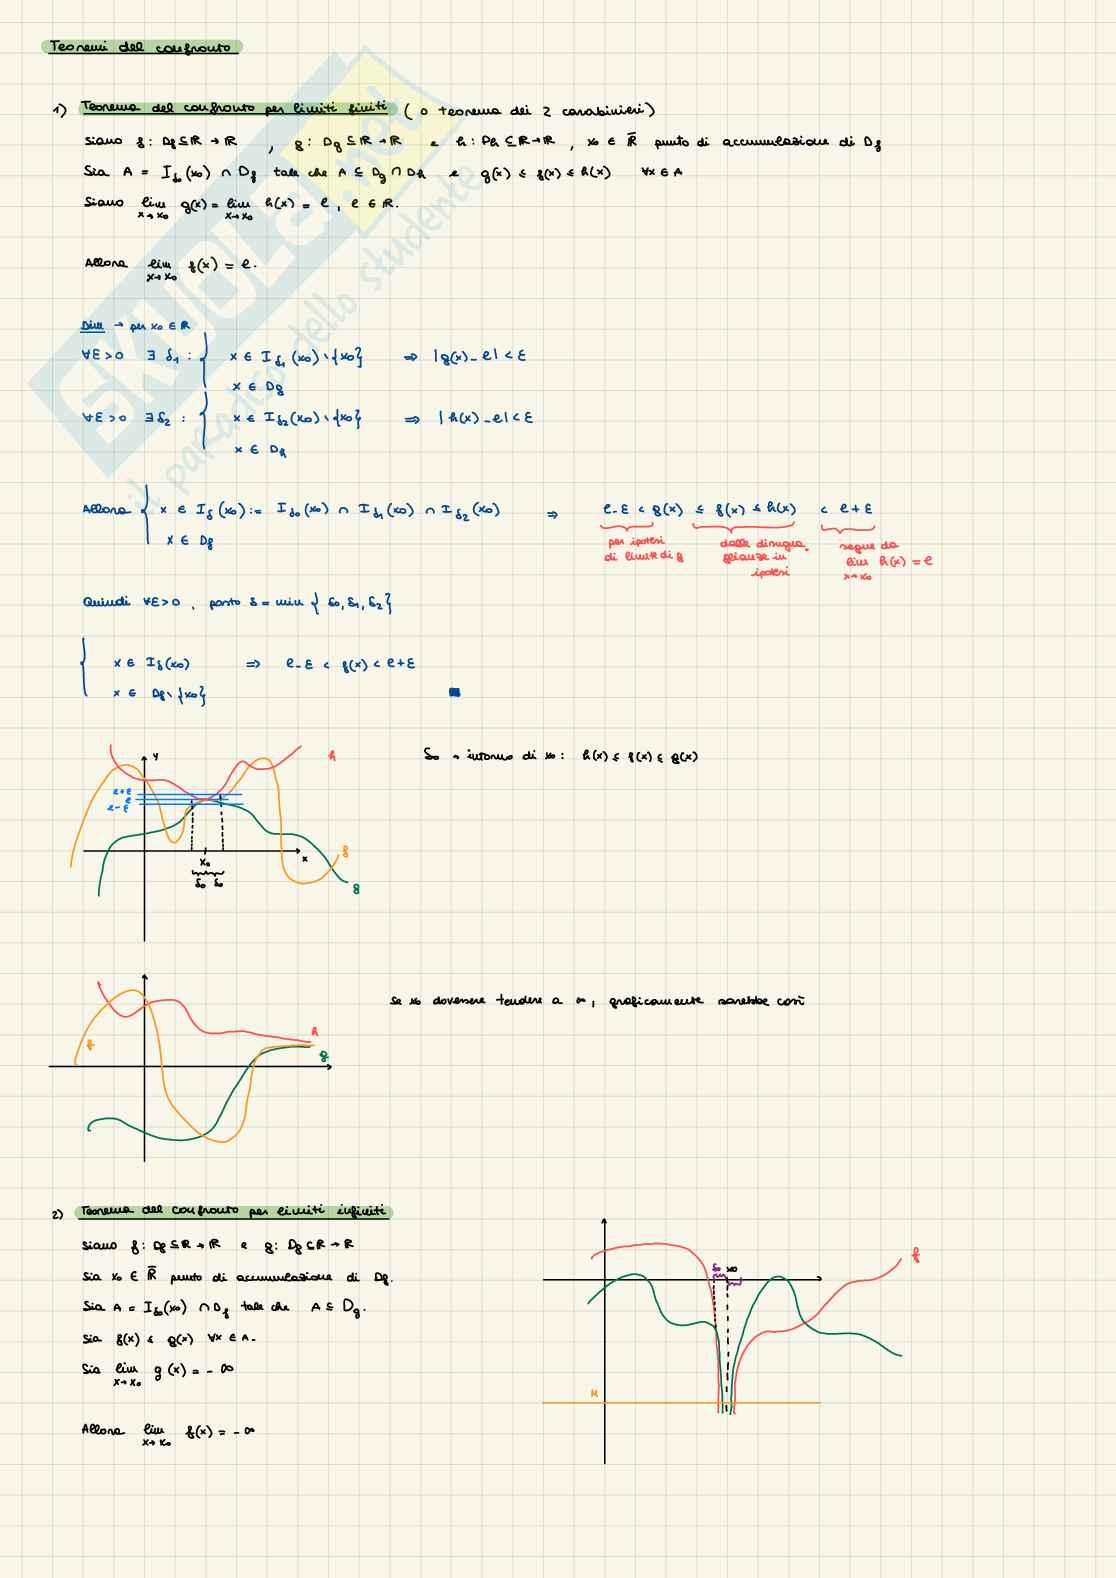 Teoremi del confronto
1) Teorema del confronto per limiti finiti ( o teorema dei 2 carabinieri)
Siano f: Df ⊆ ℝ → ℝ , g: Dg ⊆ ℝ → ℝ e h: Dh ⊆ ℝ → ℝ , x₀ ∈ ℝ̅ punto di accumulazione di Df
Sia A = I_δ₀(x₀) ∩ Df tale che A ⊆ Dg ∩ Dh e g(x) ≤ f(x) ≤ h(x) ∀x ∈ A
Siano lim x→x₀ g(x) = lim x→x₀ h(x) = ℓ , ℓ ∈ ℝ.
Allora lim x→x₀ f(x) = ℓ.
Dim → per x₀ ∈ ℝ
∀ε>0 ∃ δ₁ : { x ∈ I_δ₁(x₀)∖{x₀} ⇒ |g(x)-ℓ| < ε
x ∈ Dg
∀ε>0 ∃ δ₂ : { x ∈ I_δ₂(x₀)∖{x₀} ⇒ |h(x)-ℓ| < ε
x ∈ Dh
Allora { x ∈ I_δ(x₀) := I_δ₀(x₀) ∩ I_δ₁(x₀) ∩ I_δ₂(x₀) ⇒ ℓ-ε < g(x) ≤ f(x) ≤ h(x) < ℓ+ε
x ∈ Df
per ipotesi di limite di g
dalle disugua. glianze in ipotesi
segue da lim x→x₀ h(x) = ℓ
Quindi ∀ε>0 , posto δ = min { δ₀, δ₁, δ₂}
{ x ∈ I_δ(x₀) ⇒ ℓ-ε < f(x) < ℓ+ε
x ∈ Df∖{x₀}
y
h
δ₀ → intorno di x₀: h(x) ≤ f(x) ≤ g(x)
ℓ+ε
ℓ
ℓ-ε
f
x₀
x
δ₀ δ₀
g
se x₀ dovessere tendere a ∞, graficamente sarebbe così
h
f
g
2) Teorema del confronto per limiti infiniti
Siano f: Df ⊆ ℝ → ℝ e g: Dg ⊆ ℝ → ℝ
Sia x₀ ∈ ℝ̅ punto di accumulazione di Df.
Sia A = I_δ₀(x₀) ∩ Df tale che A ⊆ Dg.
Sia f(x) ≤ g(x) ∀x ∈ A.
Sia lim x→x₀ g(x) = -∞
Allora lim x→x₀ f(x) = -∞
f
δ₀ x₀
M
SKUOLA.net
il paradiso dello studente